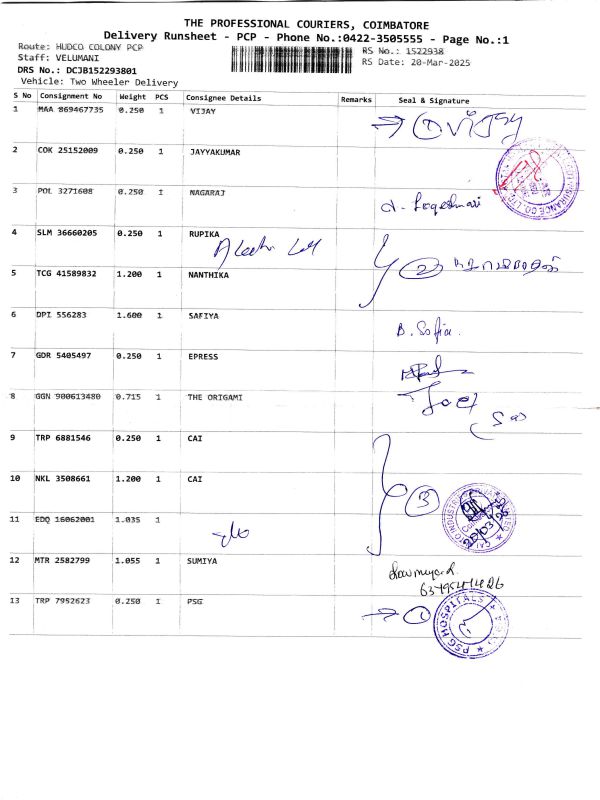 THE PROFESSIONAL COURIERS, COIMBATORE
Delivery Runsheet - PCP - Phone No.:0422-3505555 - Page No.:1
Route: HUDCO COLONY PCP RS No.: 1522938
Staff: VELUMANI RS Date: 20-Mar-2025
DRS No.: DCJB152293801
Vehicle: Two Wheeler Delivery
S No Consignment No Weight PCS Consignee Details Remarks Seal & Signature
1 MAA 869467735 0.250 1 VIJAY → ① விஜய்
2 COK 25152009 0.250 1 JAYYAKUMAR
3 POL 3271608 0.250 1 NAGARAJ
4 SLM 36660205 0.250 1 RUPIKA
5 TCG 41589832 1.200 1 NANTHIKA
6 DPI 556283 1.600 1 SAFIYA B. Sofia.
7 GDR 5405497 0.250 1 EPRESS
8 GGN 900613480 0.715 1 THE ORIGAMI Joel
9 TRP 6881546 0.250 1 CAI
10 NKL 3508661 1.200 1 CAI ③
11 EDQ 16062001 1.035 1
12 MTR 2582799 1.055 1 SUMIYA
13 TRP 7952623 0.250 1 PSG → ① PSG HOSPITALS